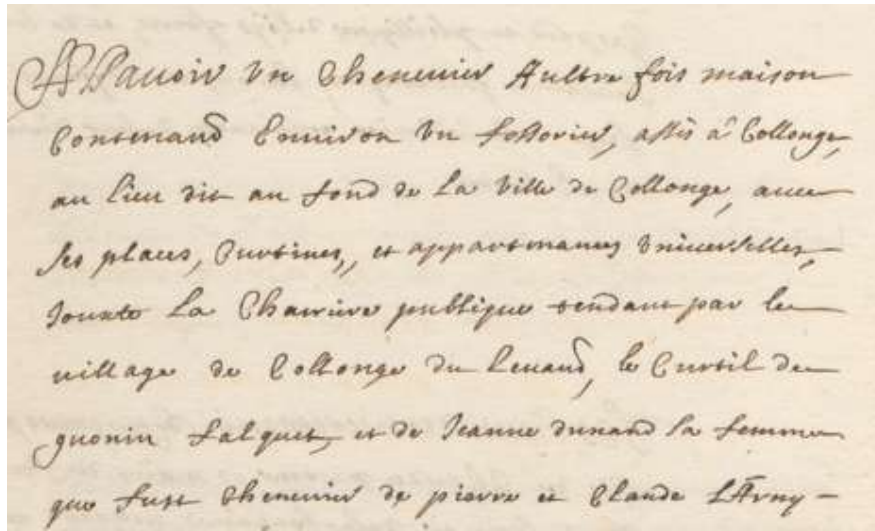 A Sauoir Vn Cheneuier Aultre fois maison
Contenand Enuiron Vn fossorier, assis à Collonge,
au lieu dit au fond de La Ville de Collonge, auec
ses places, Curtines, et appartenances Vniuerselles,
Jouxte La Charriere publique tendant par le
village de Collonge du Leuand, le Curtil de
guonin falquet, et de Jeanne dunand sa femme
que fust Cheneuier de pierre et Claude